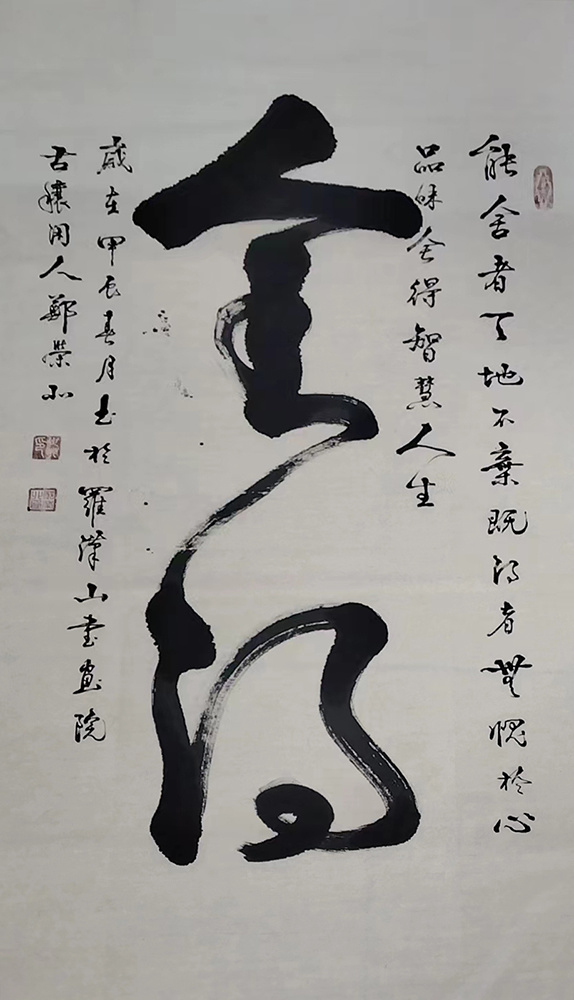 能舍者天地不棄既得者無愧於心
品味舍得智慧人生
舍得
歲在甲辰春月書於羅漢山書畫院
古穰閑人鄭榮